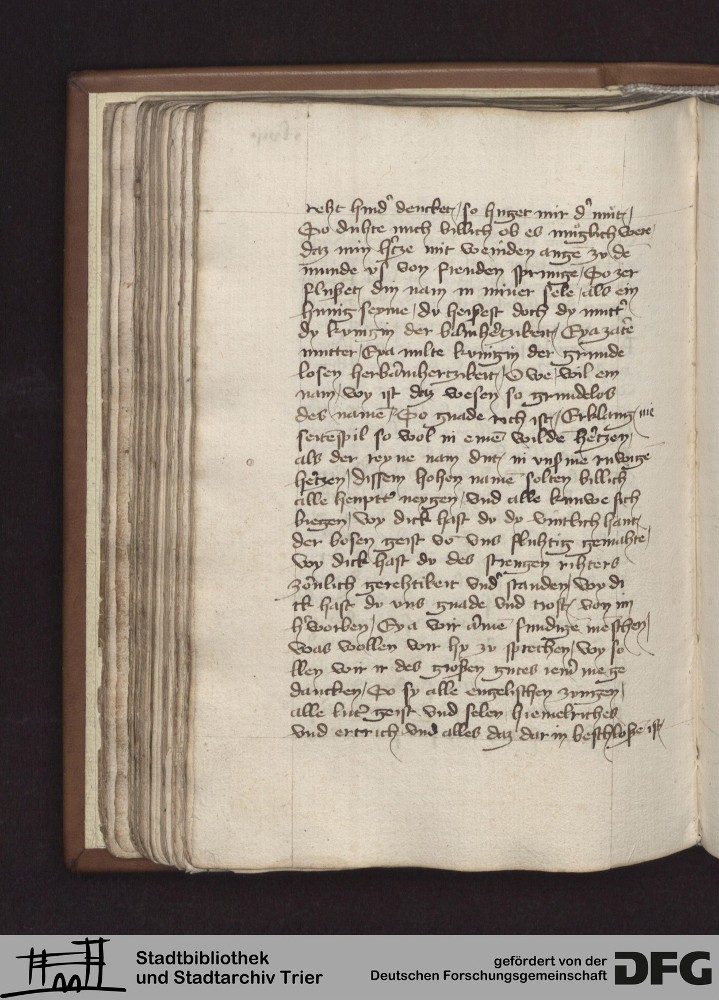 reht hind' dencket / so huget mir d' mut /
So duhte mich billich ob es muglich were
daz min h'tze mit weinden auge zu de
munde vs von freuden sprunge / So zer
flußet / din nam in miner sele / als ein
hunig seyme / du heissest doch dy mutt'
dy kunigin der barmhertzikeit / Eya zarte
mutter / Eya milte kunigin der grunde
losen herbarmhertzikeit / O we / wil ein
nam / wy ist daz wesen so grundelos
des name / So gnade rich ist / Erklang nie
seitespil so wol in eine wilde hertzen /
als der reyne nam dut / in vnsme ruwige
hertzen / dissem hohen name solten billich
alle heuptt' neygen / vnd alle knuwe sich
biegen / wy dick hast du dy vintlich hant
der bosen geist vo vns fluhtig gemahte /
wy dick hast du des strengen rihters
zornlich gerehtikeit vnd' standen / wy di
ck hast du vns gnade vnd trost / von im
h'worben / Eya wir arme sundige meschen /
was wollen wir hy zu sprechen / wy so
llen wir ir des großen gutes iem' mege
dancken / So sy alle engelischen zungen /
alle lut' geist vnd selen / hiemelriches
vnd ertrich / vnd alles daz dar in beschloße ist /
Stadtbibliothek
und Stadtarchiv Trier
gefördert von der
Deutschen Forschungsgemeinschaft
DFG